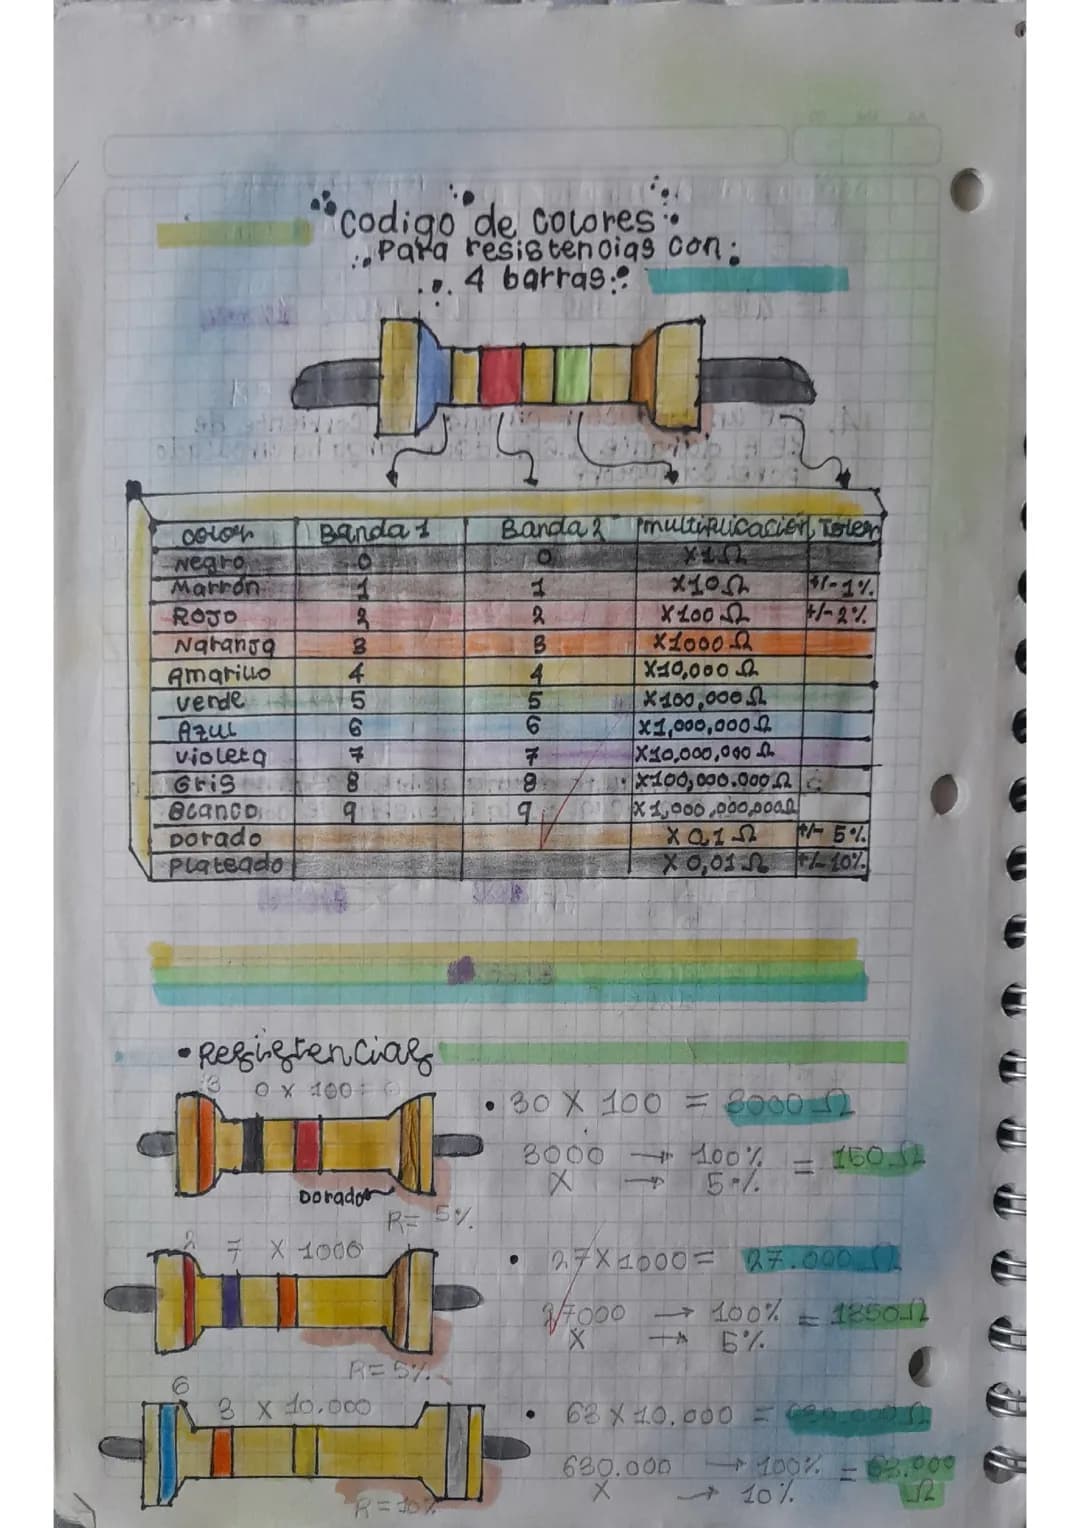 Codigo de colores
Para resistencias con
4 barras
Color Banda 1 Banda 2 multiplicación Toler
Negro 0 0 X1Ω
Marrón 1 1 X10Ω +/-1%
Rojo 2 2 X100Ω +/-2%
Naranja 3 3 X1000Ω
Amarillo 4 4 X10,000Ω
Verde 5 5 X100,000Ω
Azul 6 6 X1,000,000Ω
Violeta 7 7 X10,000,000Ω
Gris 8 8 X100,000.000Ω
Blanco 9 9 X1,000,000,000Ω
Dorado X0,1Ω +/- 5%
Plateado X0,01Ω +/- 10%
• Resistencias
3 0 X 100 =
• 30 X 100 = 3000Ω
3000 → 100% = 150Ω
X → 5%
Dorado
R= 5%
2 7 X 1000
• 27X1000= 27.000Ω
27000 → 100% = 1350Ω
X → 5%
R=5%
6
3 X 10.000
• 63X10.000 = 630.000Ω
630.000 → 100% = 63.000
X → 10% Ω
R=10%